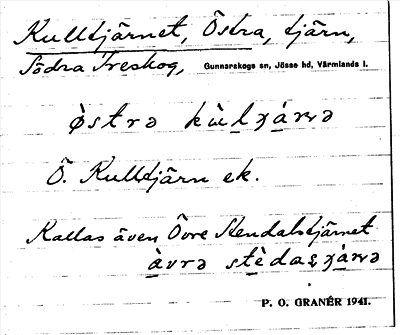 Kulltjärnet, Östra, tjärn,
Södra Treskog, Gunnarskogs sn, Jösse hd, Värmlands l.
Ö. Kulltjärn ek.
Kallas även Övre Stendalstjärnet
P. O. GRANÉR 1941.